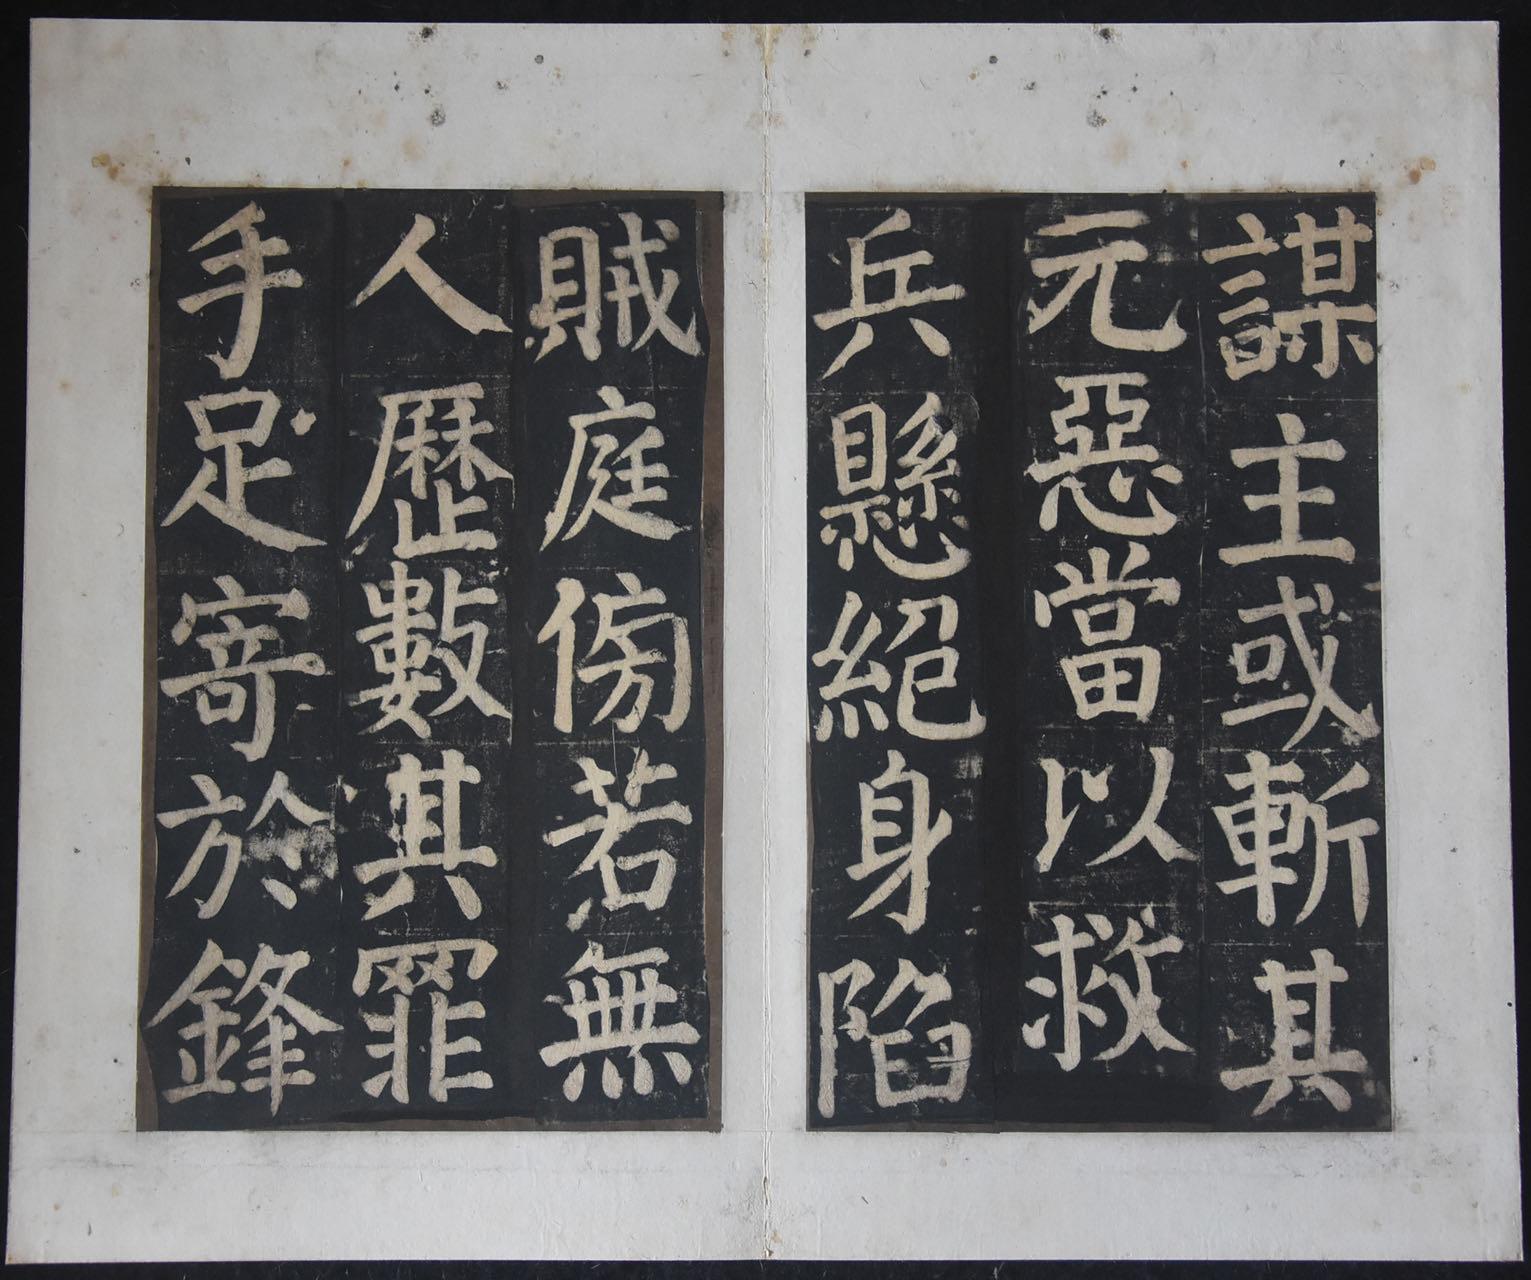 謀主或斬其
元惡當以救
兵懸絕身陷
賊庭傍若無
人歷數其罪
手足寄於鋒